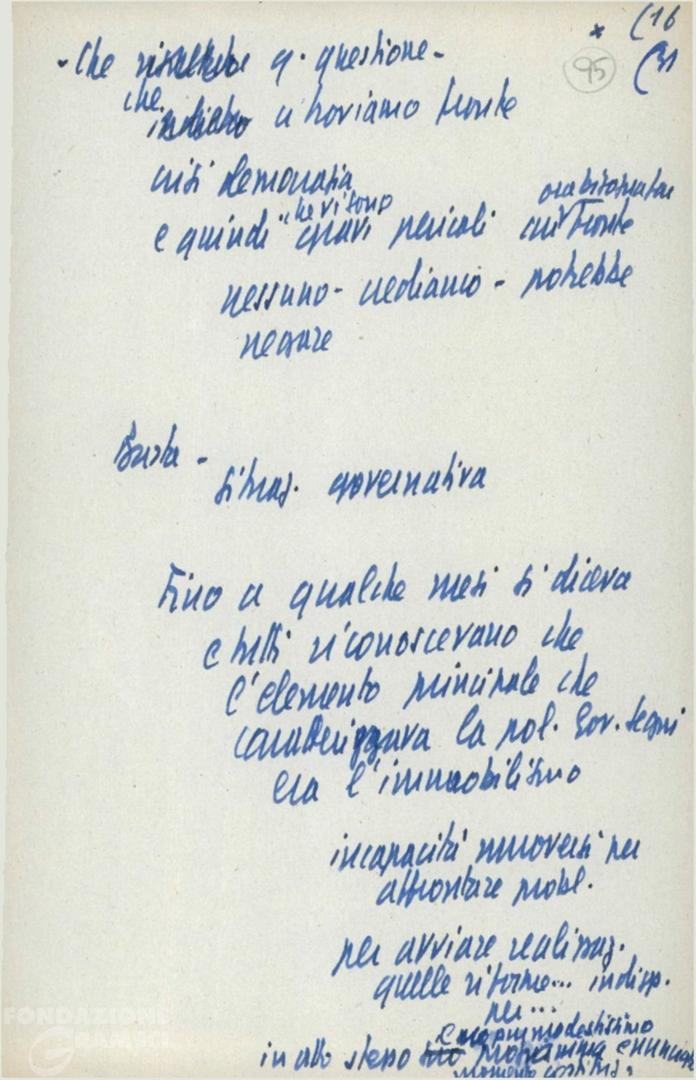 (16
95
(31
- Che q. questione -
che ci troviamo fronte
crisi democrazia
che vi sono
e quindi gravi pericoli fronte
nessuno - crediamo - potrebbe
negare
Basta -
Situaz. governativa
Fino a qualche mesi si diceva
e tutti riconoscevano che
l'elemento principale che
caratterizzava la pol. Gov. Segni
era l'immobilismo
incapacità muoversi per
affrontare probl.
per avviare realizzaz.
quelle riforme... indisp.
per...
e neppur modestissimo
in allo stesso programma
FONDAZIONE
GRAMSCI